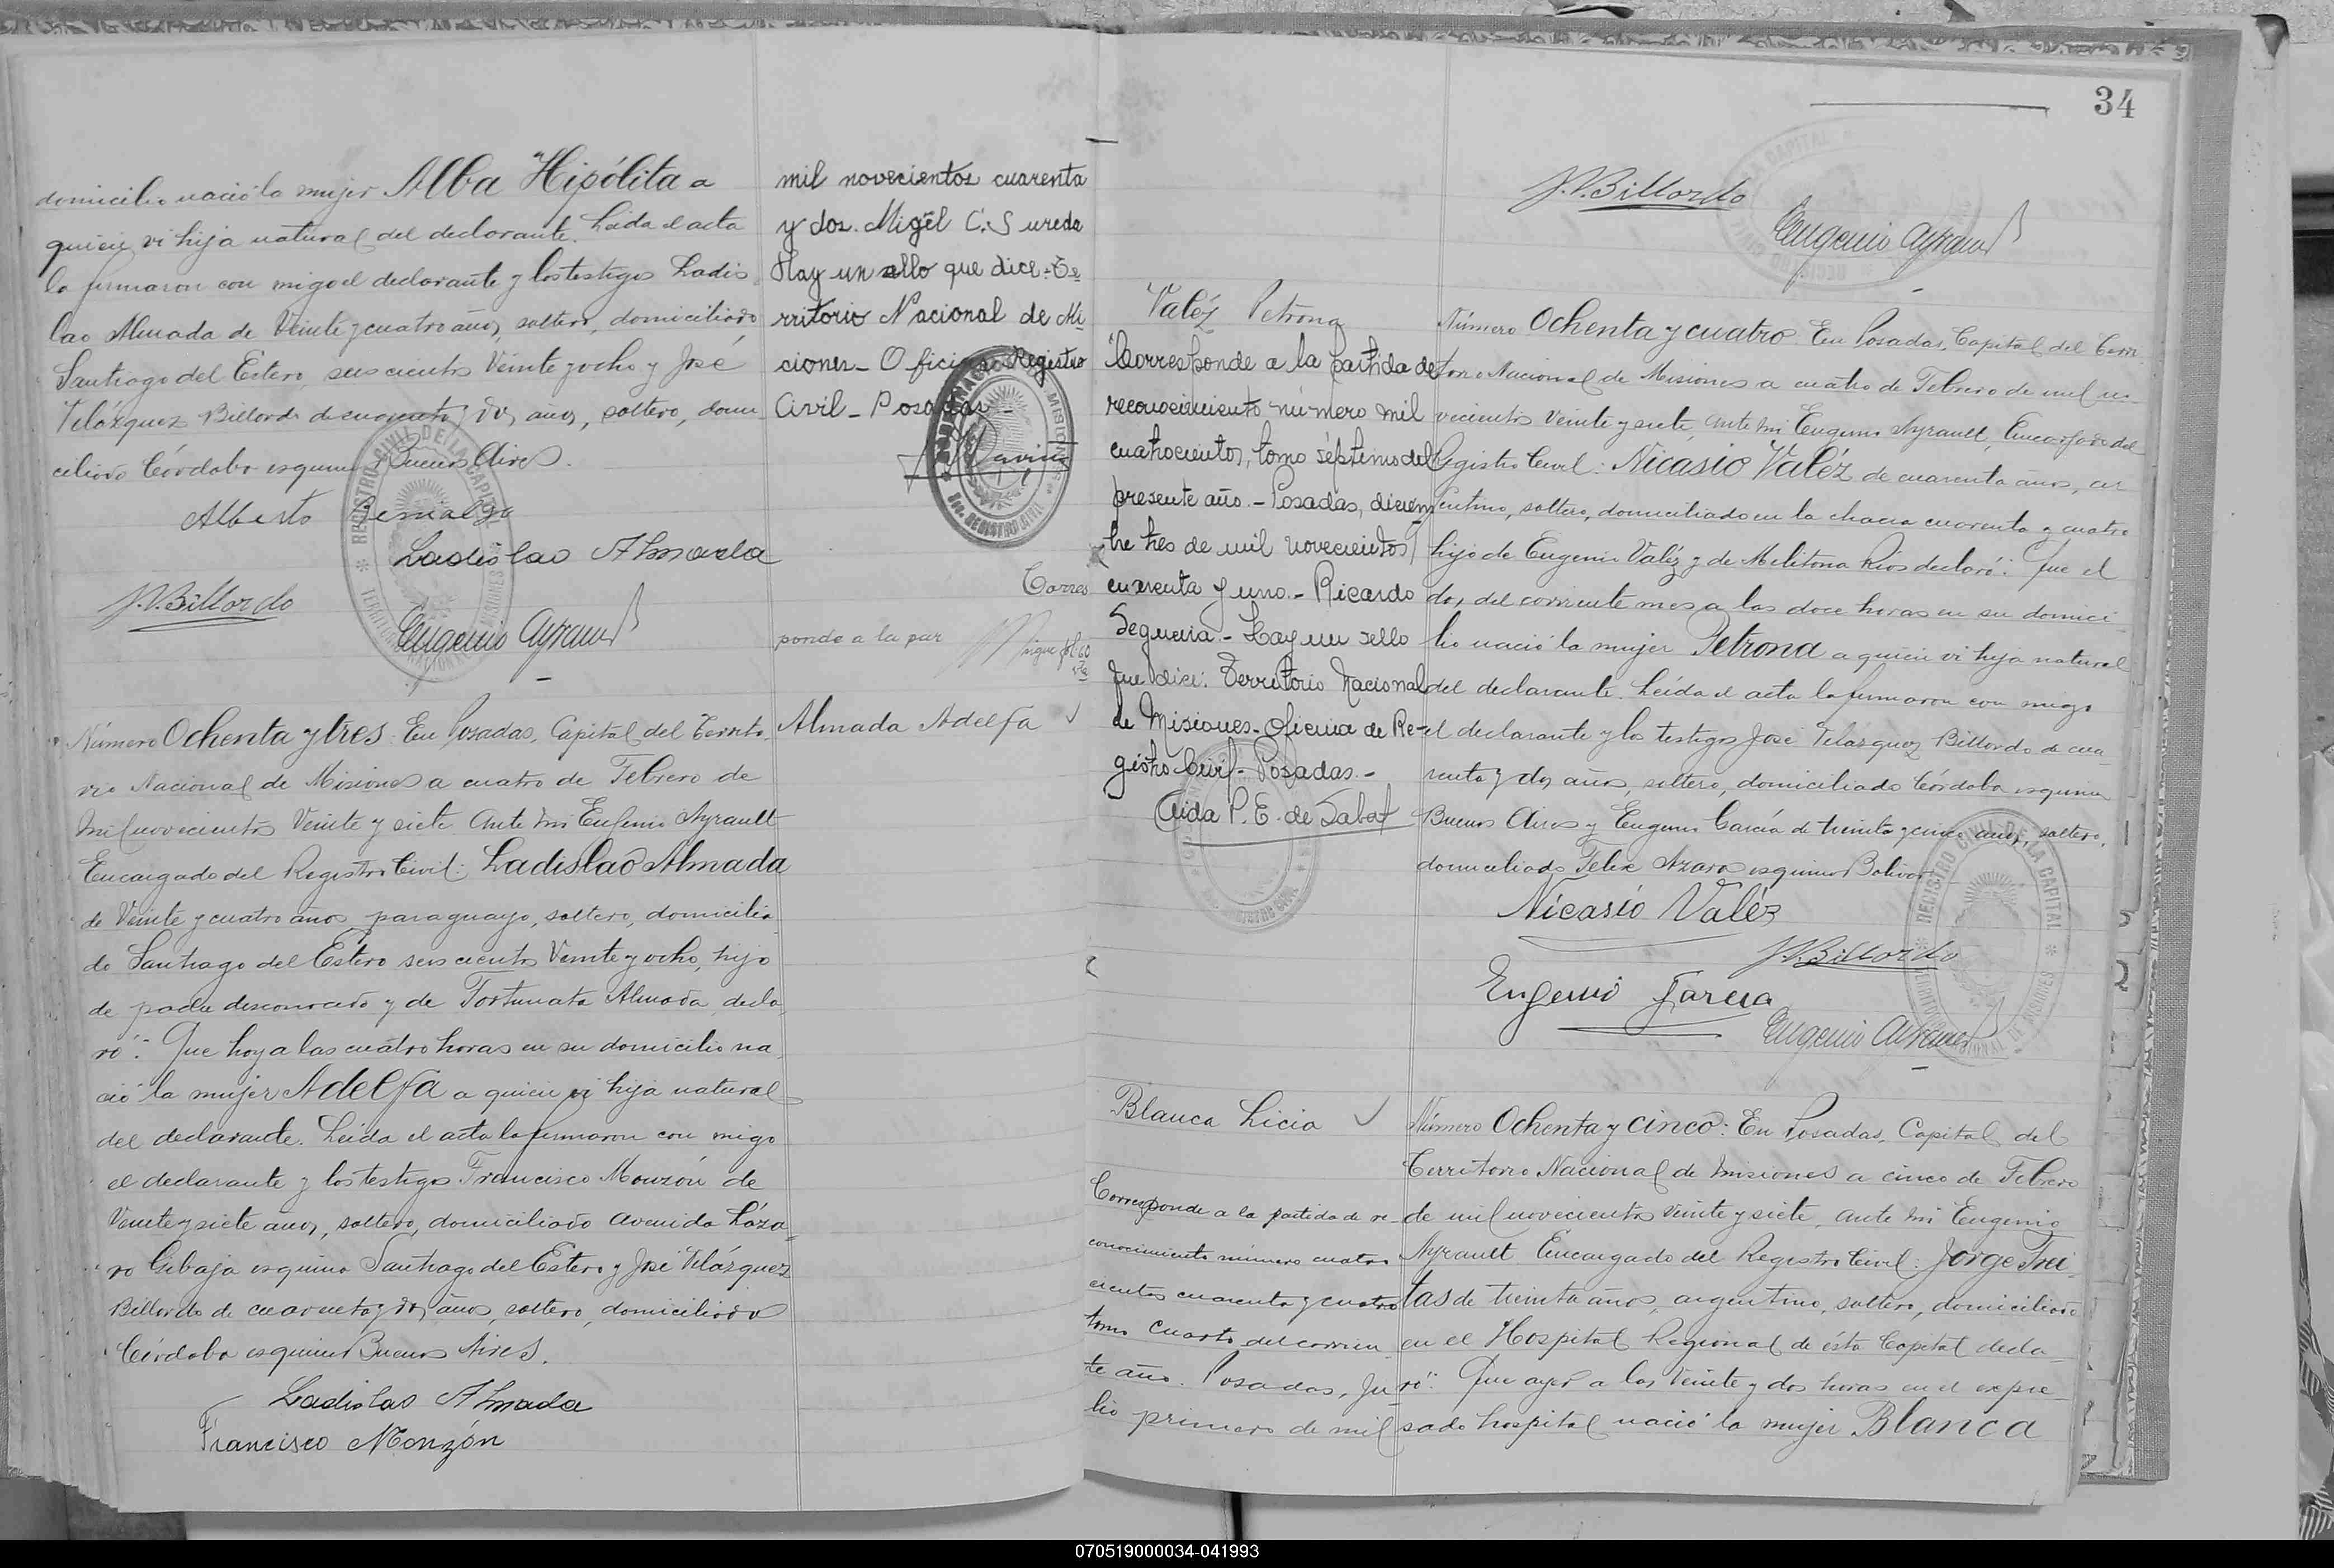 domicilio nació la mujer Alba Hipólita a
quien vi hija natural del declarante. Leída el acta
la firmaron con migo el declarante y los testigos Ladis
lao Almada de Veinte y cuatro años, soltero, domiciliado
Santiago del Estero, seis cientos Veinte y ocho y José
Velázquez Billordo de cuarenta y dos años, soltero, domi
ciliado Córdoba esquina Buenos Aires.
Alberto
Ladislao Almada
J.V. Billordo
Eugenio Ayrault
Número Ochenta y tres. En Posadas, Capital del Territo
rio Nacional de Misiones a cuatro de Febrero de
mil novecientos Veinte y siete, Ante mi Eugenio Ayrault
Encargado del Registro Civil: Ladislao Almada
de Veinte y cuatro años, paraguayo, soltero, domicilia
do Santiago del Estero seis cientos Veinte y ocho, hijo
de padre desconocido y de Fortunata Almada, decla
ró: Que hoy a las cuatro horas en su domicilio na
ció la mujer Adelfa a quien vi hija natural
del declarante. Leída el acta la firmaron con migo
el declarante y los testigos Francisco Monzón de
Veinte y siete años, soltero, domiciliado Avenida Láza
ro Gibaja esquina Santiago del Estero y José Velázquez
Billordo de cuarenta y dos años, soltero, domiciliado
Córdoba esquina Buenos Aires.
Ladislao Almada
Francisco Monzón
mil novecientos cuarenta
y dos. Migël C. Sureda
Hay un sello que dice:-Te
rritorio Nacional de Mi
siones- Oficina Registro
Civil- Posadas-
Corres
ponde a la par
Almada Adelfa ✓
34
J.V. Billordo
Eugenio Ayrault
Valéz Petrona
Corresponde a la partida de
reconocimiento número mil
cuatrocientos, tomo séptimo del
presente año.- Posadas, diciem
bre tres de mil novecientos
cuarenta y uno.- Ricardo
Segueria.- Hay un sello
que dice: Territorio Nacional
de Misiones- Oficina de Re-
gistro Civil- Posadas.-
Aida P. E. de Sabat
Número Ochenta y cuatro. En Posadas, Capital del Terri
torio Nacional de Misiones a cuatro de Febrero de mil no
vecientos Veinte y siete, Ante mi Eugenio Ayrault, Encargado del
Registro Civil: Nicasio Valéz de cuarenta años, ar
gentino, soltero, domiciliado en la chacra cuarenta y cuatro
hijo de Eugenio Valéz y de Melitona Rios declaró: Que el
dos del corriente mes a las doce horas en su domici
lio nació la mujer Petrona a quien vi hija natural
del declarante. Leída el acta la firmaron con migo
el declarante y los testigos José Velázquez Billordo de cua
renta y dos años, soltero, domiciliado Córdoba esquina
Buenos Aires y Eugenio García de treinta y cinco años, soltero,
domiciliado Felix Azara esquina Bolivar
Nicasio Valéz
J.V. Billordo
Eugenio Garcia
Eugenio Ayrault
Blanca Licia ✓
Corresponde a la partida de re-
conocimiento número cuatro
cientos cuarenta y cuatro
tomo cuarto del corrien
te año. Posadas, Ju
lio primero de mil
Número Ochenta y cinco: En Posadas, Capital del
Territorio Nacional de Misiones a cinco de Febrero
de mil novecientos Veinte y siete, ante mi Eugenio
Ayrault Encargado del Registro Civil: Jorge Frei
tas de treinta años, argentino, soltero, domiciliado
en el Hospital Regional de ésta Capital decla
ró: Que ayer a las Veinte y dos horas en el expre
sado hospital nació la mujer Blanca
070519000034-041993